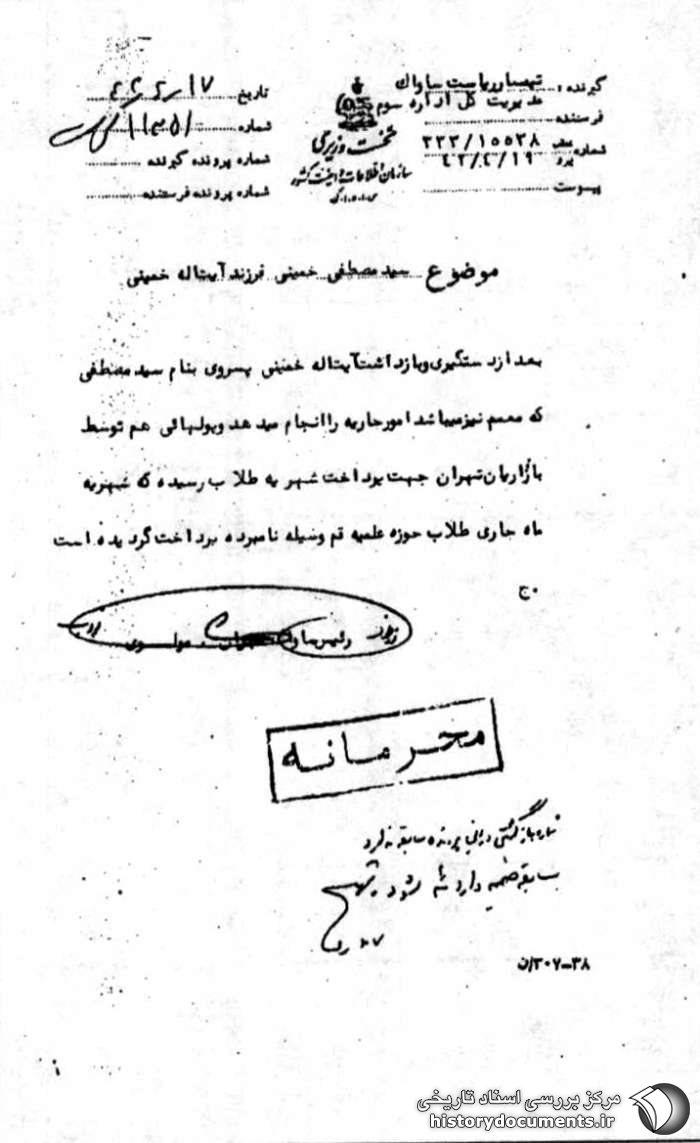 گیرنده: تیمسار ریاست ساواک
مدیریت کل اداره سوم
فرستنده
شماره عطف ۳۳۲/۱۵۵۳۸
پیرو ۴۲/۴/۱۹
پیوست
نخست وزیری
سازمان اطلاعات و امنیت کشور
س.ا.و.ا.ک
تاریخ
شماره
شماره پرونده گیرنده
شماره پرونده فرستنده
موضوع سید مصطفی خمینی فرزند آیت اله خمینی
بعد از دستگیری و بازداشت آیت اله خمینی پسر وی بنام سید مصطفی
که معمم نیز میباشد امور جاریه را انجام میدهد و پولهائی هم توسط
بازاریان تهران جهت پرداخت شهریه طلاب رسیده که شهریه
ماه جاری طلاب حوزه علمیه قم وسیله نامبرده پرداخت گردیده است
ج۰
رئیس ساواک تهران - مولوی
محرمانه
۳۸-۳۰۷/ن
مرکز بررسی اسناد تاریخی
historydocuments.ir